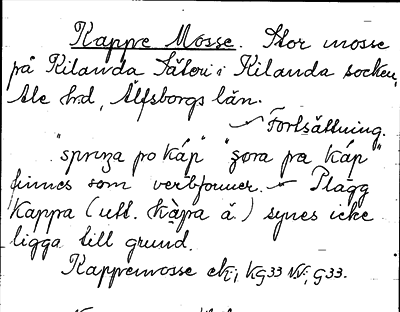 Kappe Mosse. Stor mosse
på Kilanda Säteri i Kilanda socken,
Ale hd, Älfsborgs län.
Fortsättning.
"springa po káp" "gora pra káp"
finnes som verbformer. Plagg
Kappa (utt. kàpa ä) synes icke
ligga till grund.
Kappemosse ek; KG33 NV; G33.